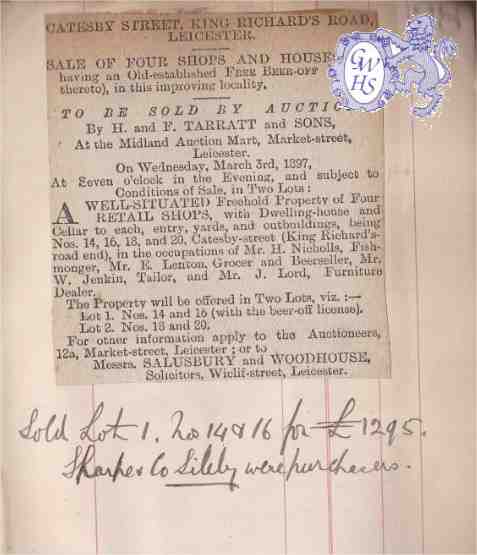 CATESBY STREET, KING RICHARD'S ROAD,
LEICESTER.
SALE OF FOUR SHOPS AND HOUSES
having an Old-established FREE BEER-OFF
thereto), in this improving locality.
TO BE SOLD BY AUCTIO
By H. and F. TARRATT and SONS,
At the Midland Auction Mart, Market-street,
Leicester.
On Wednesday, March 3rd, 1897,
At Seven o'clock in the Evening, and subject to
Conditions of Sale, in Two Lots:
A WELL-SITUATED Freehold Property of Four
RETAIL SHOPS, with Dwelling-house and
Cellar to each, entry, yards, and outbuildings, being
Nos. 14, 16, 18, and 20, Catesby-street (King Richard's-
road end), in the occupations of Mr. H. Nicholls, Fish-
monger, Mr. E. Lenton, Grocer and Beerseller, Mr.
W. Jenkin, Tailor, and Mr. J. Lord, Furniture
Dealer.
The Property will be offered in Two Lots, viz. :—
Lot 1. Nos. 14 and 16 (with the beer-off license).
Lot 2. Nos. 18 and 20.
For other information apply to the Auctioneers,
12a, Market-street, Leicester; or to
Messrs. SALUSBURY and WOODHOUSE,
Solicitors, Wiclif-street, Leicester.
GWHS
Sold Lot 1. Nos 14 & 16 for £1295.
Sharpes Co Sileby were purchasers.